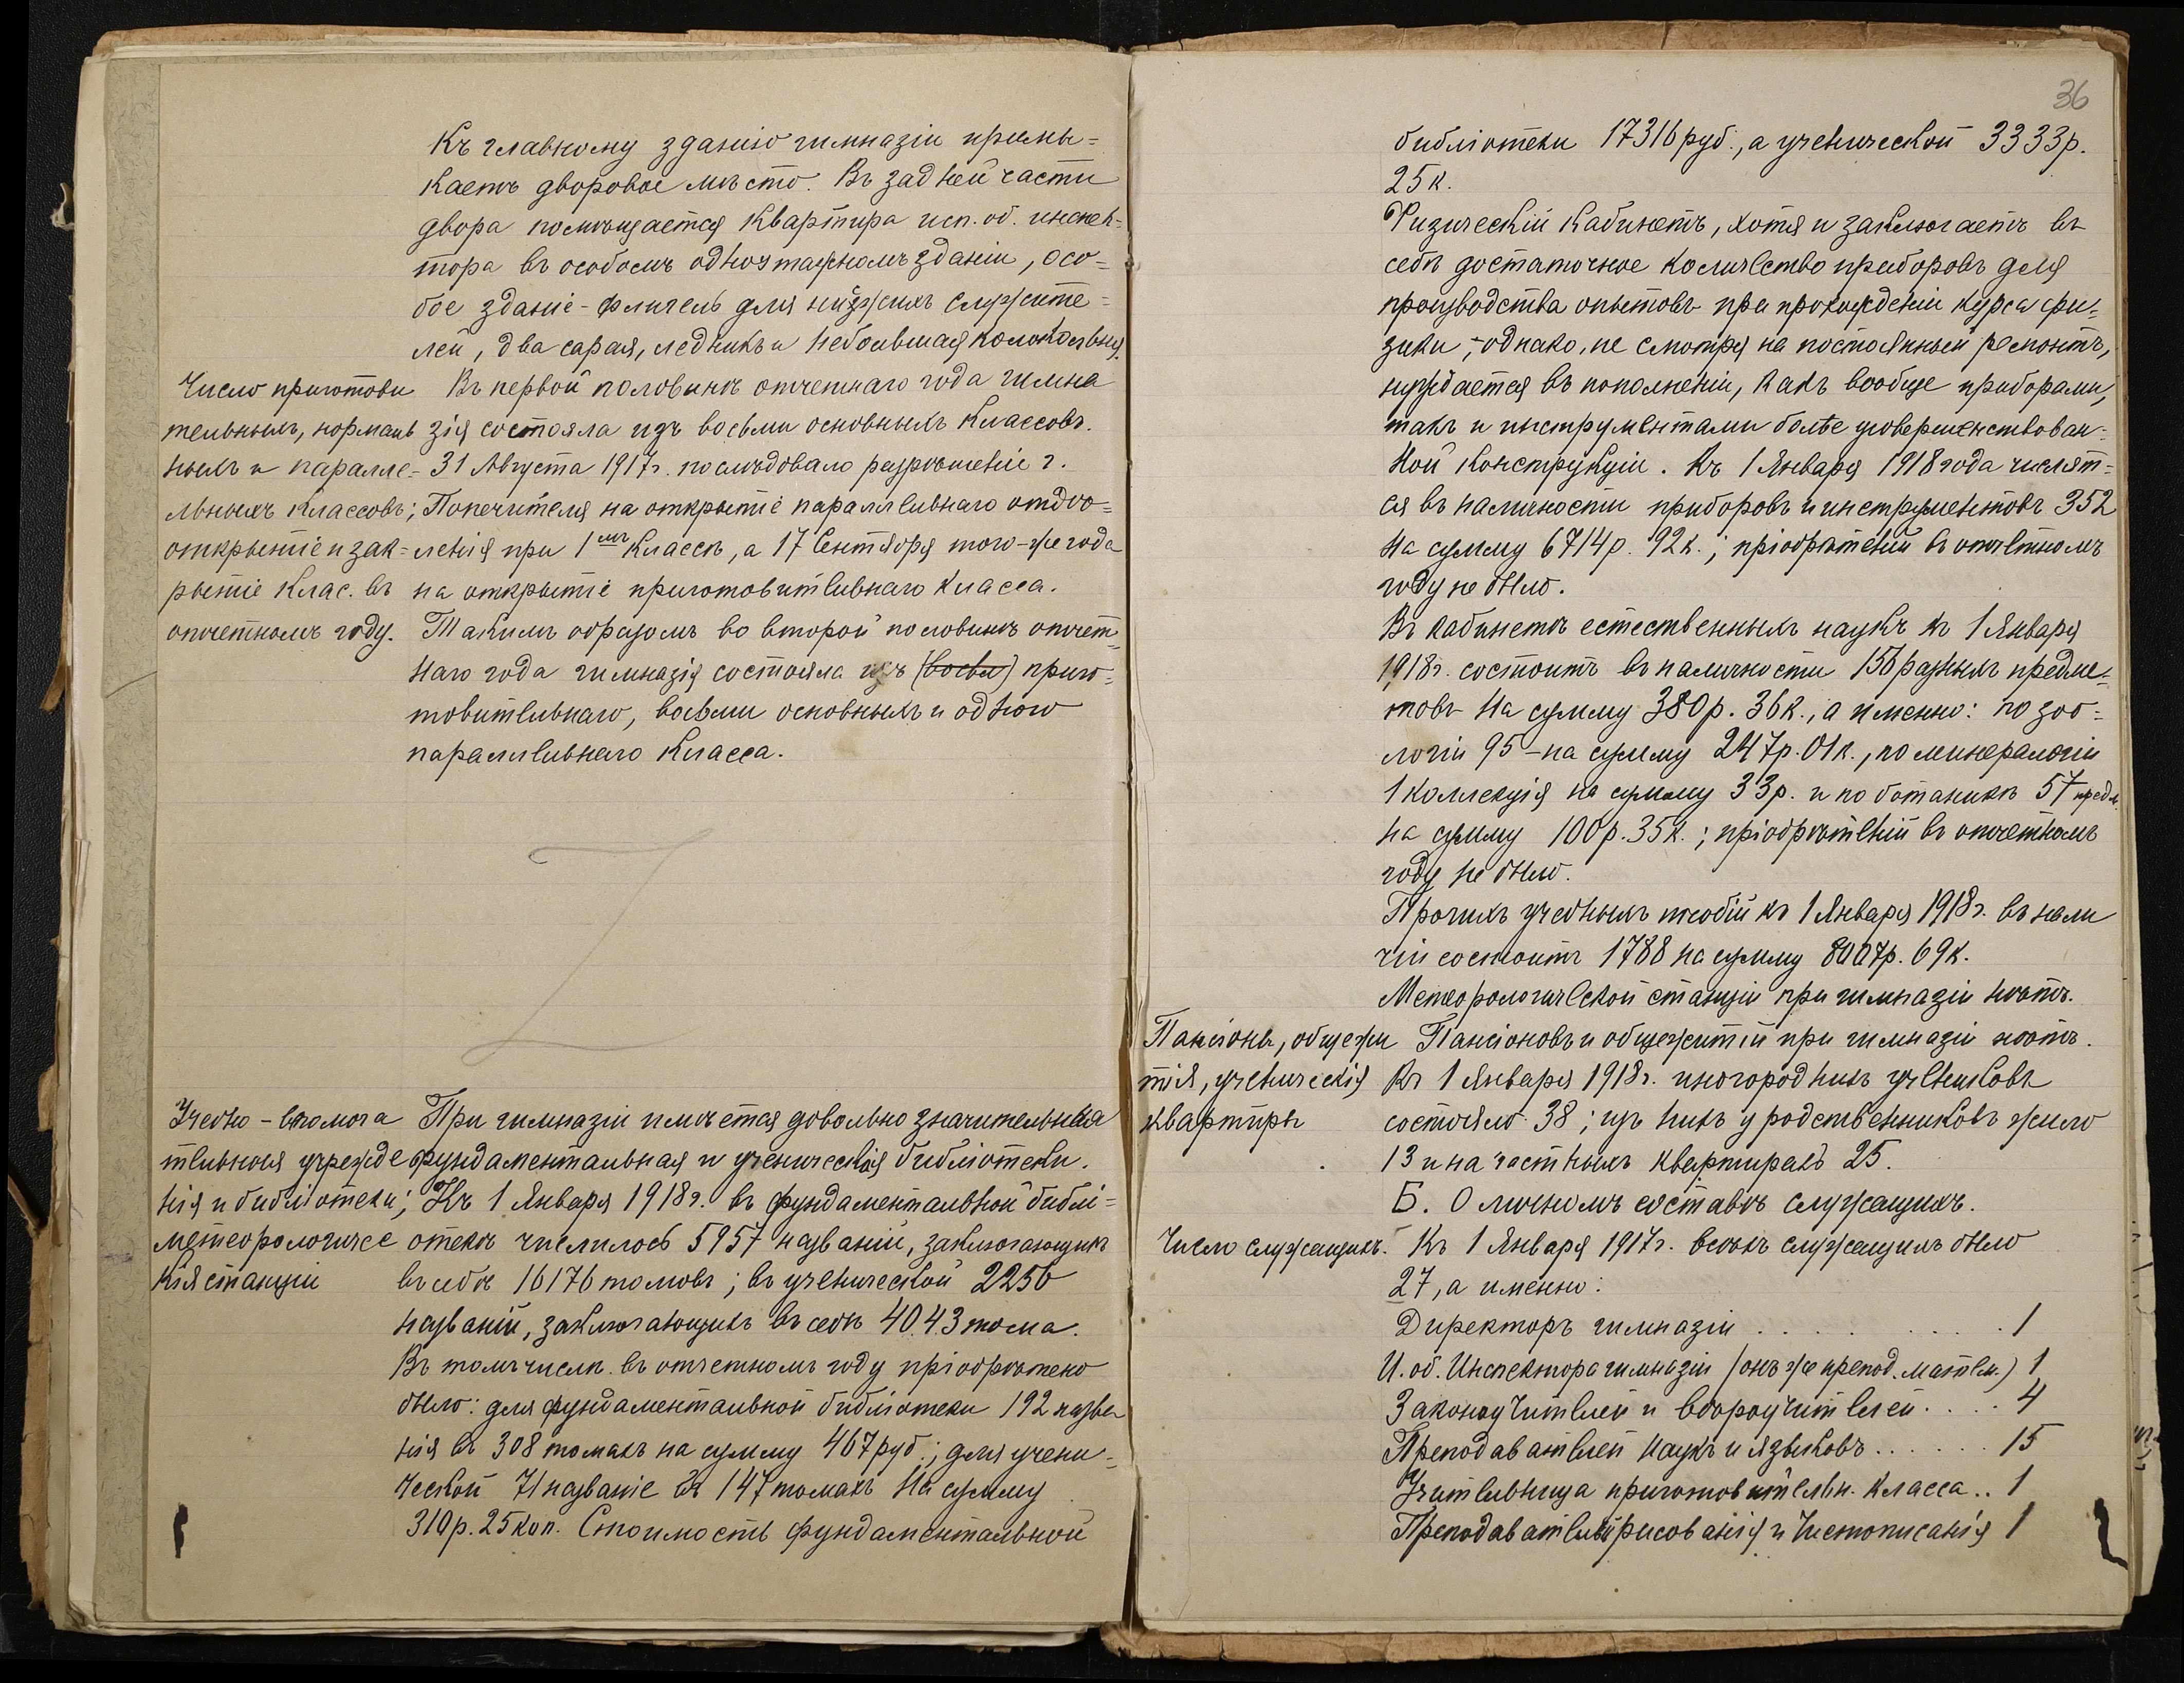 Къ главному зданію гимназіи примы=
каетъ дворовое мѣсто. Въ задней части
двора помѣщается квартира исп. об. инспек=
тора въ особомъ одноэтажномъ зданіи, осо=
бое зданіе - флигель для низшихъ служите=
лей, два сарая, ледникъ и небольшая колокольня.
Число приготови
тельныхъ, нормаль
ныхъ и паралле-
льныхъ классовъ;
открытіе и зак=
рытіе клас. въ
отчетномъ году.
Въ первой половинѣ отчетнаго года гимна
зія состояла изъ восьми основныхъ классовъ.
31 Августа 1917г. послѣдовало разрѣшеніе г.
Попечителя на открытіе параллельнаго отдѣ=
ленія при 1мъ классѣ, а 17 Сентября того-же года
на открытіе приготовительнаго класса.
Такимъ образомъ во второй половинѣ отчет=
наго года гимназія состояла изъ (восьми) приго=
товительнаго, восьми основныхъ и одного
параллельнаго класса.
Учебно-вспомога
тельныя учрежде
нія и библіотеки;
метеорологичес
кія станціи
При гимназіи имѣется довольно значительная
фундаментальная и ученическая библіотеки.
Къ 1 Января 1918г. въ фундаментальной библі=
отекѣ числилось 5957 названій, заключающихъ
въ себѣ 16176 томовъ; въ ученической 2256
названій, заключающихъ въ себѣ 4043 тома.
Въ томъ числѣ въ отчетномъ году пріобрѣтено
было: для фундаментальной библіотеки 192 назва
нія въ 308 томахъ на сумму 467 руб.; для учени=
ческой 71 названіе въ 147 томахъ на сумму
310р. 25 коп. Стоимость фундаментальной
36
библіотеки 17316 руб., а ученической 3333р.
25к.
Физическій кабинетъ, хотя и заключаетъ въ
себѣ достаточное количество приборовъ для
производства опытовъ при прохожденіи курса фи=
зики,-однако, не смотря на постоянный ремонтъ,
нуждается въ пополненіи, какъ вообще приборами,
такъ и инструментами болѣе усовершенствован=
ной конструкціи. Къ 1 Января 1918 года числят=
ся въ наличности приборовъ и инструментовъ 352
на сумму 6714р. 92к.; пріобрѣтеній въ отчетномъ
году не было.
Въ кабинетѣ естественныхъ наукъ къ 1 Января
1918г. состоитъ въ наличности 156 разныхъ предме=
товъ на сумму 380р. 36к., а именно: по зоо=
логіи 95-на сумму 247р. 01к., по минералогіи
1 коллекція на сумму 33р. и по ботаникѣ 57 предм.
на сумму 100р. 35к.; пріобрѣтеній въ отчетномъ
году не было.
Прочихъ учебныхъ пособій къ 1 Января 1918г. въ нали
чіи состоитъ 1788 на сумму 8007р. 69к.
Метеорологической станціи при гимназіи нѣтъ.
Пансіоны, общежи
тія, ученическія
квартиры
Пансіоновъ и общежитій при гимназіи нѣтъ.
Къ 1 Января 1918г. иногороднихъ учениковъ
состояло 38; изъ нихъ у родственниковъ жило
13 и на частныхъ квартирахъ 25.
Б. О личномъ составѣ служащихъ.
Число служащихъ.
Къ 1 Января 1917г. всѣхъ служащихъ было
27, а именно:
Директоръ гимназіи . . . . . . . . . . 1
И. об. Инспектора гимназіи (онъ же препод. матем.) 1
Законоучителей и вѣроучителей . . . . 4
Преподавателей наукъ и языковъ . . . . . . 15
Учительница приготовительн. класса . . 1
Преподаватель рисованія и чистописанія 1